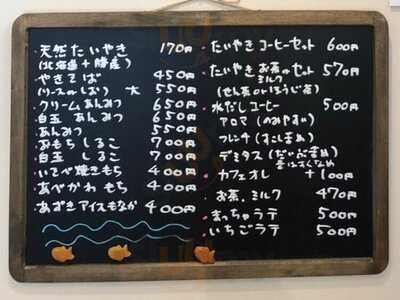 ・天然たいやき 170円
(北海道+勝産)
・やきそば 450円
(ソースorしお) 大 550円
・クリームあんみつ 650円
・白玉 あんみつ 650円
・あんみつ 550円
・おもち しるこ 700円
・白玉 しるこ 700円
・いそべ焼きもち 400円
・あべかわ もち 400円
・あずき アイスもなか 400円
・たいやき コーヒーセット 600円
・たいやき お茶orセット 570円
ミルク
(せん茶orほうじ茶)
・水だしコーヒー 500円
アロマ (のみやすい)
フレンチ (すこし苦め)
デミタス (だいぶ苦め)
量はすくなめ
・カフェオレ +100円
・お茶、ミルク 470円
・まっちゃラテ 500円
・いちごラテ 500円